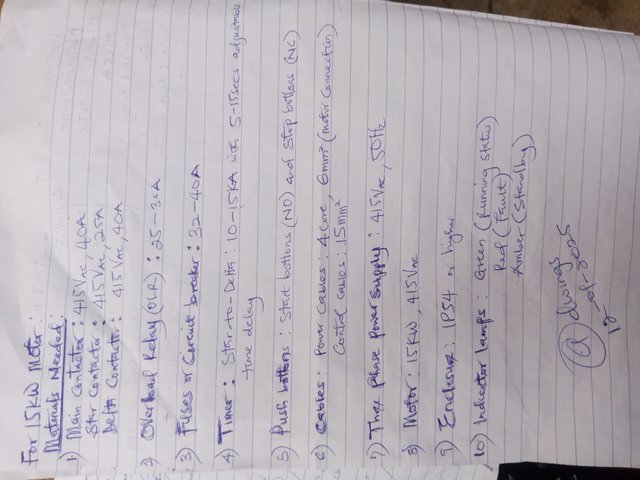 For 15KW Motor:
Materials Needed:
1) Main Contactor: 415Vac, 40A
Star Contactor: 415Vac, 25A
Delta Contactor: 415Vac, 40A
2) Overload Relay (OLR): 25-32A
3) Fuses or Circuit breaker: 32-40A
4) Timer: Star-to-Delta: 10-15KA with 5-15secs adjustable
time delay
5) Push bottons: Start bottons (NO) and Stop bottons (NC)
6) Cables: Power Cables: 4 Core, 6mm² (motor connection)
Control cables: 1.5mm²
7) Three phase power supply: 415Vac, 50Hz
8) Motor: 15KW, 415Vac
9) Enclosure: IP54 or higher
10) Indicator lamps: Green (Running Status)
Red (Fault)
Amber (Standby)